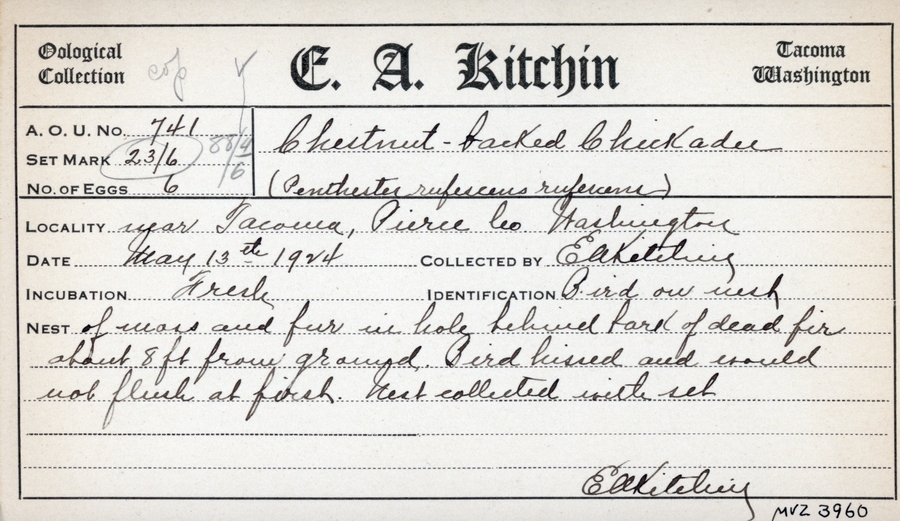 Oological
Collection
cop
E. A. Kitchin
Tacoma
Washington
A. O. U. No. 741
SET MARK 23/6
88/4/6
NO. OF EGGS 6
Chestnut-backed Chickadee
(Penthestes rufescens rufescens)
LOCALITY near Tacoma, Pierce Co Washington
DATE May 13th 1924 COLLECTED BY EAKitchin
INCUBATION Fresh IDENTIFICATION Bird on nest
NEST of moss and fur in hole behind bark of dead fir
about 8 ft from ground. Bird hissed and would
not flush at first. Nest collected with set
EAKitchin
MVZ 3960